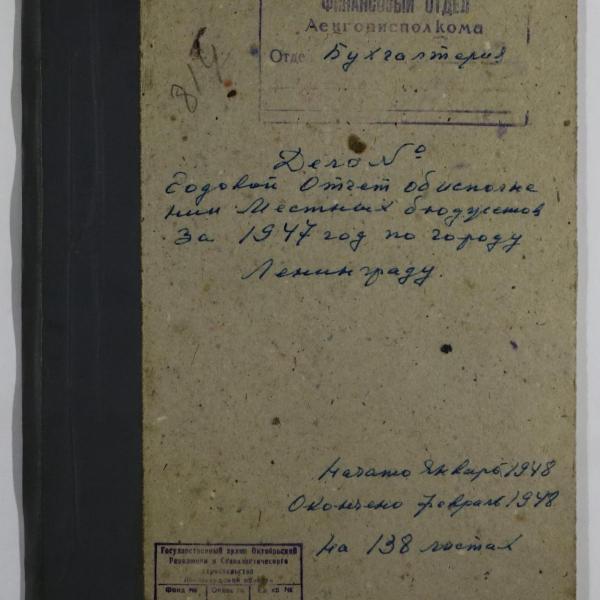 ФИНАНСОВЫЙ ОТДЕЛ
Ленгорисполкома
Отде Бухгалтерия
814
Дело №
Годовой Отчет об исполне
нии Местных бюджетов
За 1947 год по городу
Ленинграду.
Начато Январь 1948
Окончено февраль 1948
на 138 листах
Государственный архив Октябрьской
Революции и Социалистического
строительства
Ленинградской области
Фонд № Опись № Ед. хр №